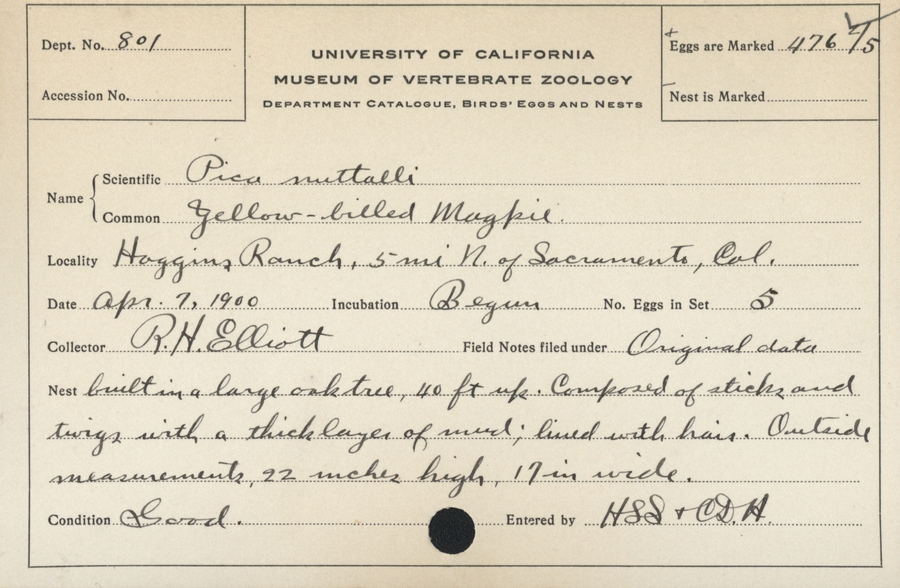 Dept. No. 801
Accession No.
UNIVERSITY OF CALIFORNIA
MUSEUM OF VERTEBRATE ZOOLOGY
DEPARTMENT CATALOGUE, BIRDS' EGGS AND NESTS
Eggs are Marked 476 4/5
Nest is Marked
Name
Scientific Pica nuttalli
Common Yellow-billed Magpie.
Locality Haggins Ranch, 5 mi N. of Sacramento, Cal.
Date Apr. 7, 1900 Incubation Begun No. Eggs in Set 5
Collector R.H. Elliott Field Notes filed under Original data
Nest built in a large oak tree, 40 ft up. Composed of sticks and
twigs with a thick layer of mud; lined with hair. Outside
measurements, 22 inches high, 17 in wide.
Condition Good. Entered by HSS + CD.H.